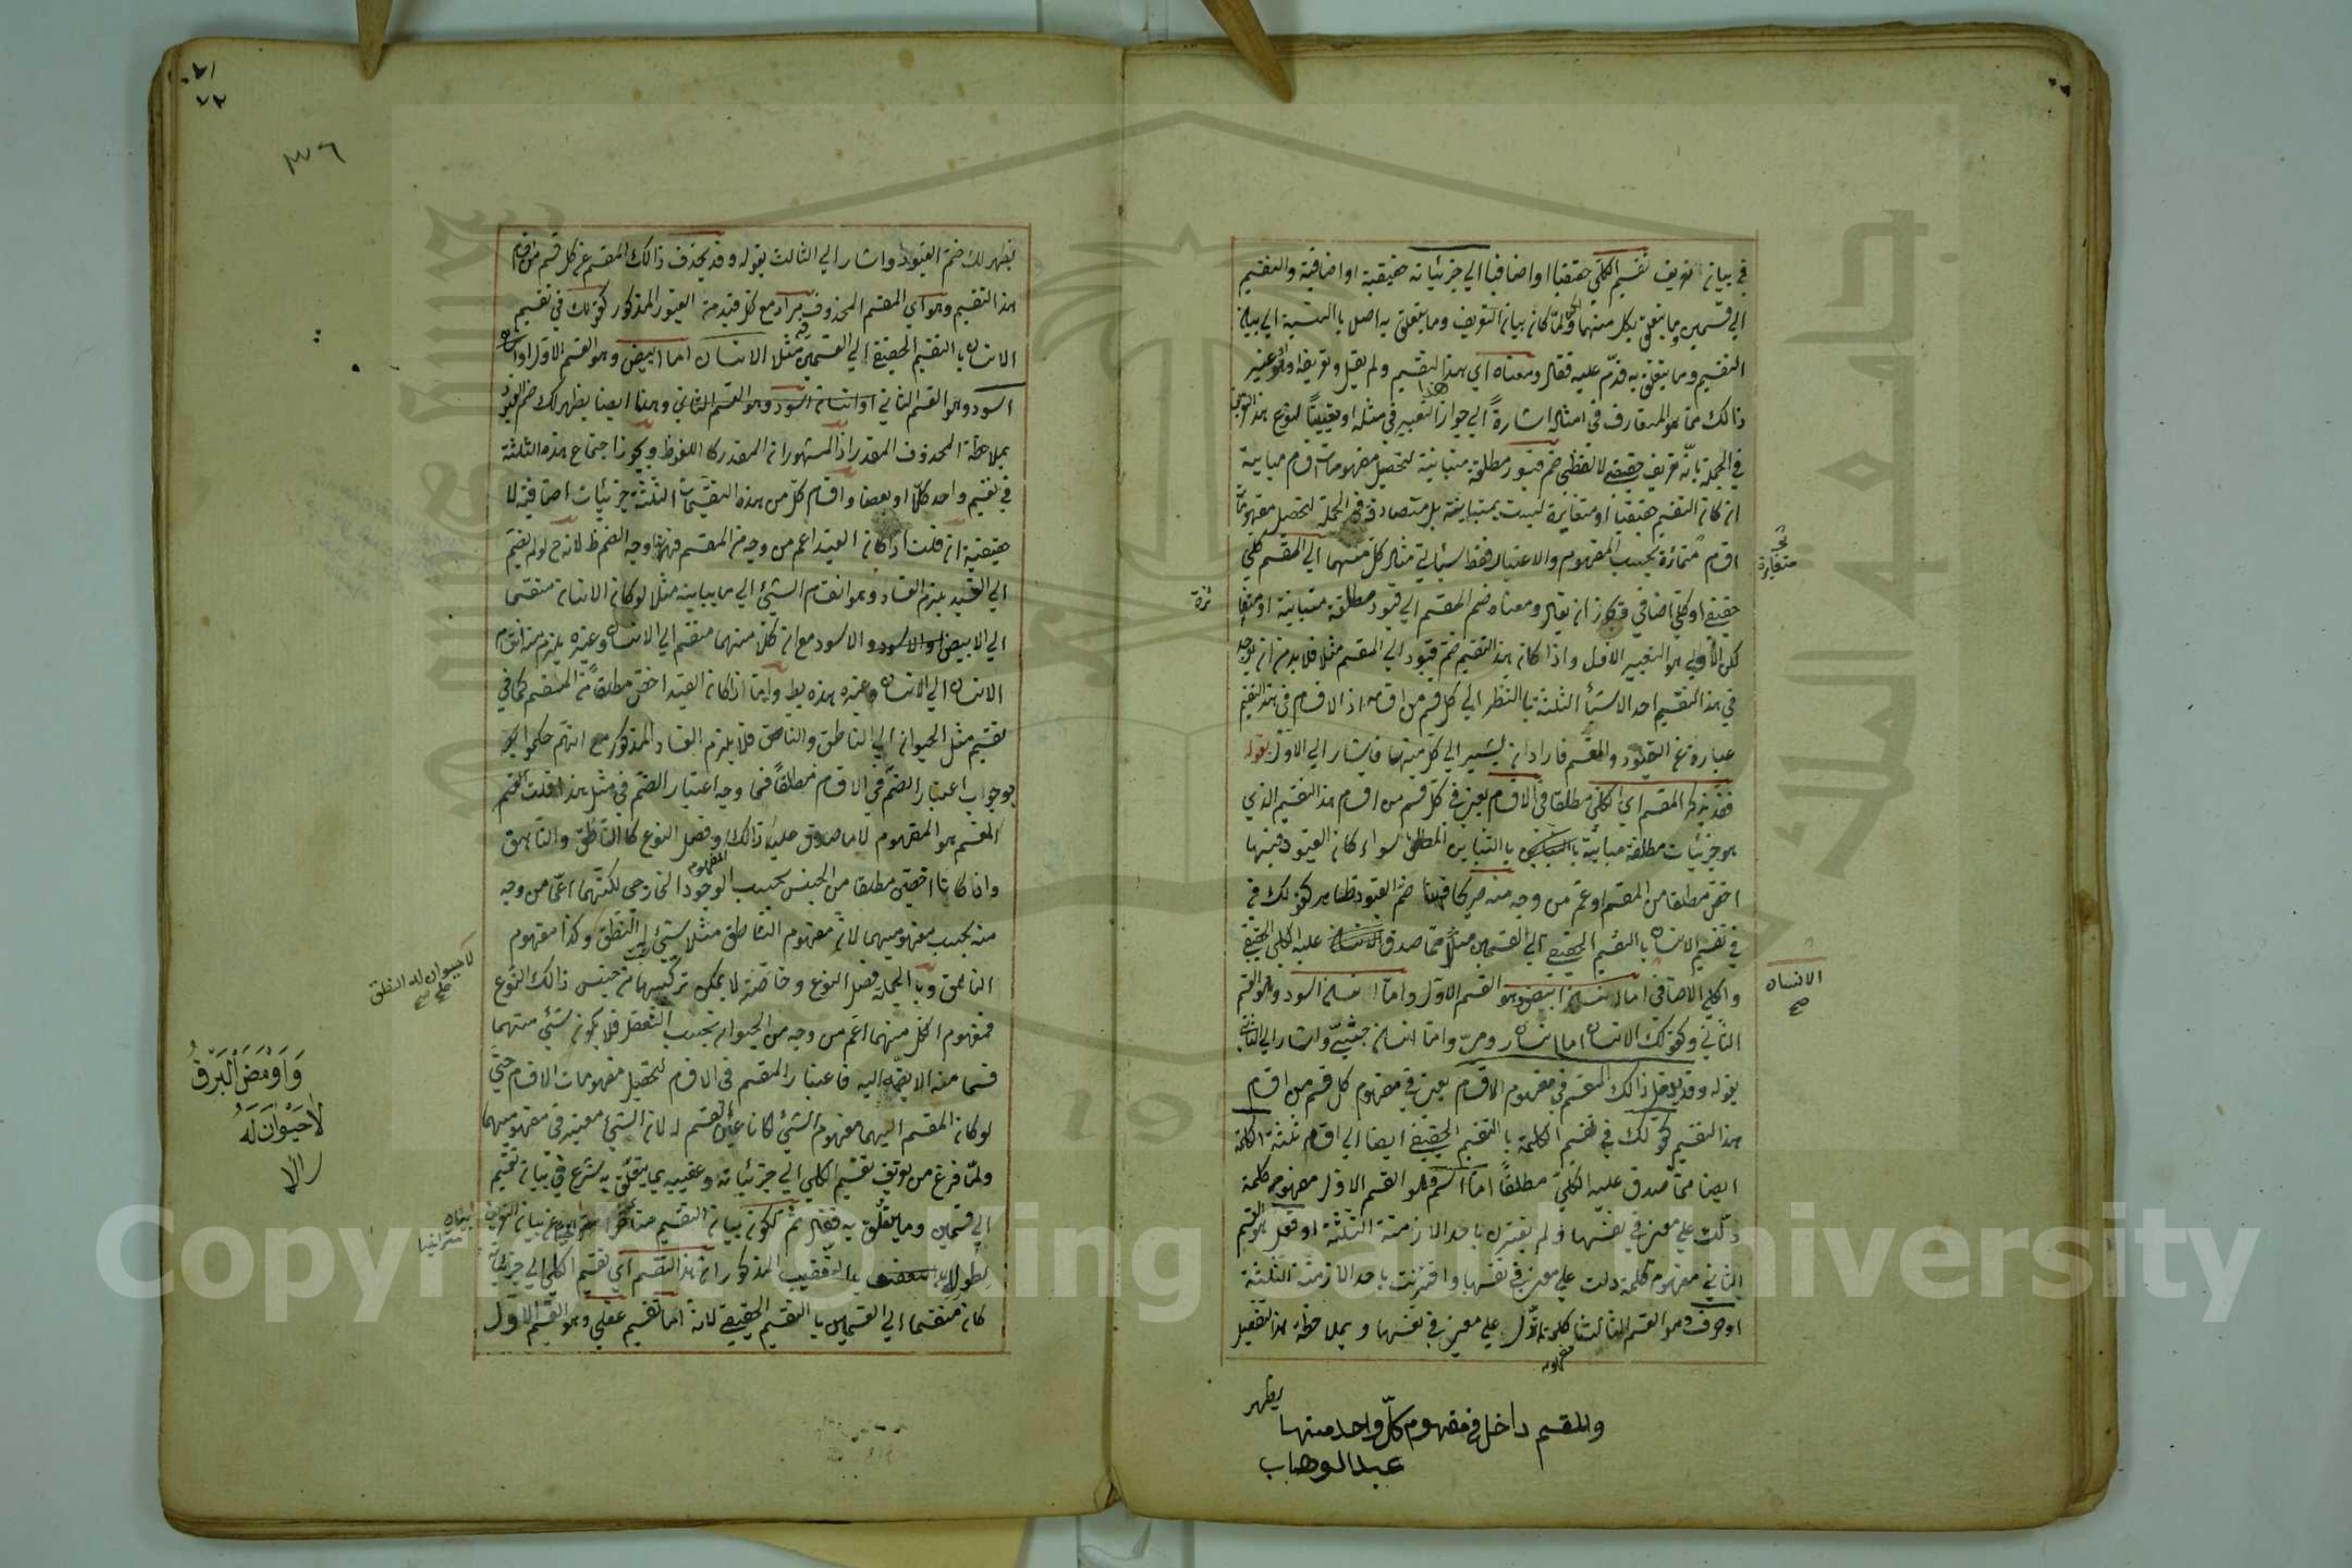 في بيان تعريف تقسيم الكلي حقيقيا او اضافيا الي جزئياته حقيقية او اضافية والتقسيم
الي قسمين وما يتعلق بكل منهما ولما كان بيان التعريف وما يتعلق به اصل بالنسبة الي بيان
التقسيم وما يتعلق به قدّم عليه فقال ومعناه اي هذا التقسيم ولم يقل وتعريفه او غير
ذالك مما هو المتعارف في امثاله اشارةً الي جواز التعبير في مثله
في الجملة بانّه تعريف حقيقي لا لفظي ضم قيود مطلقة متباينة لتحصيل مفهومات اقسام مباينة
ان كان التقسيم حقيقيا او متغايرة ليست بمتباينة بل متصادقة في الجملة لتحصيل مفهومات
اقسام متمايزة بحسب المفهوم والاعتبار فقط سيأتي مثال كل منهما الي المقسم كلي
حقيقي او كلي اضافي ويجوز ان يقال ومعناه ضم المقسم الي قيود مطلقة متباينة او
لكن الأولي هو التعبير الاول واذا كان هذا التقسيم ضم قيود الي المقسم مثلا فلا بد من ان يوجد
في هذا التقسيم احد الاشياء الثلثة بالنظر الي كل قسم من اقسامه اذ الاقسام في هذا التقسيم
عبارة عن القيود والمقسم فاراد ان يشير الي كل منها فاشار الي الاول بقوله
فقد يذكر المقسم اي الكلي مطلقا في الاقسام يعني في كل قسم من اقسام هذا التقسيم الذي
هو جزئيات مطلقة مباينة بالتباين المطلق سواء كان القيود فيها
اخص مطلقا من المقسم او اعم من وجه منه ضم القيود ظاهر كقولك في
في تقسيم الانسان بالتقسيم الحقيقي الي القسمين مثلا مما صدق عليه الكلي الحقيقي
والكلي الاضافي اما انسان ابيض وهو القسم الاول واما انسان اسود وهو القسم
الثاني وكقولك الانسان اما انسان رومي واما انسان حبشي واشار الي الثاني
بقوله وقد يدخل ذالك المقسم في مفهوم الاقسام يعني في مفهوم كل قسم من اقسام
هذا التقسيم كقولك في تقسيم الكلمة بالتقسيم الحقيقي ايضا الي اقسام ثلثة الكلمة
ايضا مما صدق عليه الكلي مطلقًا اما اسم وهو القسم الاول مفهومه كلمة
دلّت علي معني في نفسها ولم يقترن باحد الازمنة الثلثة او فعل هو القسم
الثاني مفهومه كلمة دلت علي معني في نفسها واقترنت باحد الازمنة الثلثة
او حرف وهو القسم الثالث كلمة لا تدل علي معني في نفسها وبملاحظة هذا التفصيل
مفهومه
يظهر
والمقسم داخل في مفهوم كلّ واحد منها
عبد الوهاب
متغايرة
الانسان
صح
يظهر لك ضم القيود واشار الي الثالث بقوله وقد يحذف ذالك المقسم عن كل قسم من اقسام
هذا التقسيم وهو اي المقسم المحذوف مراد مع كل قيد من القيود المذكور كقولك في تقسيم
الانسان بالتقسيم الحقيقي الي القسمين مثلا الانسان اما ابيض وهو القسم الاول او
اسود وهو القسم الثاني او انسان اسود وهو القسم الثاني وهنا ايضا يظهر لك ضم القيود
بملاحظة المحذوف المقدر اذ المشهور ان المقدر كا الملفوظ ويجوز اجتماع هذه الثلثة
في تقسيم واحد كلّا او بعضا واقسام كل من هذه التقسيمات الثلثة جزئيات اضافية لا
حقيقية ان قلت اذا كان القيد اعم من وجه من المقسم فهذا وجه الضم ظ لانه ح لو لم يضم
الي القيد يلزم الفساد وهو انقسام الشيئ الي ما يباينه مثلا لو كان الانسان منقسما
الي الابيض والاسود مع ان كلا منهما منقسم الي الانسان وغيره يلزم منه انقسام
الانسان الي الانسان وغيره هذه بط واما اذا كان القيد اخص مطلقًا من المقسم كما في
تقسيم مثل الحيوان الي الناطق والناهق فلا يلزم الفساد المذكور مع انهم حكموا
بوجوب اعتبار الضم في الاقسام مطلقًا فما وجه اعتبار الضم في مثل هذا قلت
المقسم هو المفهوم لا ما صدق عليه ذالك وفصل النوع كا الناطق والناهق
وان كانا اخصّين مطلقا من الجنس بحسب الوجود الخارجي لكنهما اعمّ من وجه
منه بحسب مفهوميهما لان مفهوم الناطق مثلا شيئ له النطق وكذا مفهوم
الناهق وبا الجملة فصل النوع وخاصّته لا يمكن تركيبهما من جنس ذالك النوع
فمفهوم كل منهما اعم من وجه من الحيوان بحسب التعقل فلا يكون شيئ منهما
قسما منه الا بضمّه اليه فاعتبار المقسم في الاقسام لتحصيل مفهومات الاقسام حتي
لو كان المقسم اليهما مفهوم الشيئ لكانا عين القسم له لان الشيئ معتبر في مفهوميهما
ولمّا فرغ من تعريف تقسيم الكلي الي جزئياته وتعقيبه بما يتعلق به شرع في بيان تقسيم
الي قسمين وما يتعلق به فقال ثم لكون بيان التقسيم متأخرا عن بيان التعريف
المذكور ان هذا التقسيم اي تقسيم الكلي الي جزئياته
كان منقسما الي القسمين با التقسيم الحقيقي لانه اما تقسيم عقلي وهو القسم الاول
لا حيوان له النطق
صح
وَاَوْمَضَ الْبَرْقُ
لَا حَيْوَانَ لَهُ
٣٦
٧٢
Copyright © King Saud University
1957
جامعة الملك سعود